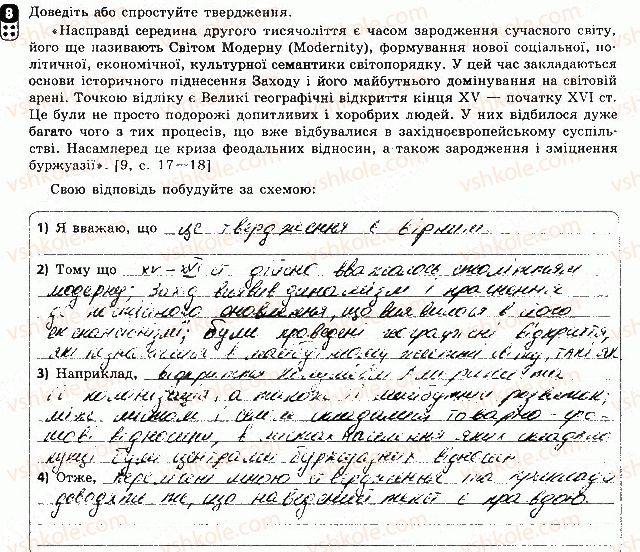 8 Доведіть або спростуйте твердження.
«Насправді середина другого тисячоліття є часом зародження сучасного світу,
його ще називають Світом Модерну (Modernity), формування нової соціальної, по-
літичної, економічної, культурної семантики світопорядку. У цей час закладаються
основи історичного піднесення Заходу і його майбутнього домінування на світовій
арені. Точкою відліку є Великі географічні відкриття кінця XV — початку XVI ст.
Це були не просто подорожі допитливих і хоробрих людей. У них відбилося дуже
багато чого з тих процесів, що вже відбувалися в західноєвропейському суспіль-
стві. Насамперед це криза феодальних відносин, а також зародження і зміцнення
буржуазії». [9, с. 17—18]
Свою відповідь побудуйте за схемою:
1) Я вважаю, що це твердження є вірним
2) Тому що XV-XVI ст дійсно вважалось століттям
модерну; Захід виявив динамізм і прагнення
до постійного оновлення, що виявилося в його
експансіонізмі; були проведені географічні відкриття,
які
3) Наприклад, відкриття Америки та
її колонізація, а також її майбутній розвиток;
між містом і селом складалися товарно-гро-
шові відносини, в містах населення яких складали
купці були центрами буржуазних відносин
4) Отже, перелічені мною твердження та приклади
доводять те, що наведений текст є правдою.